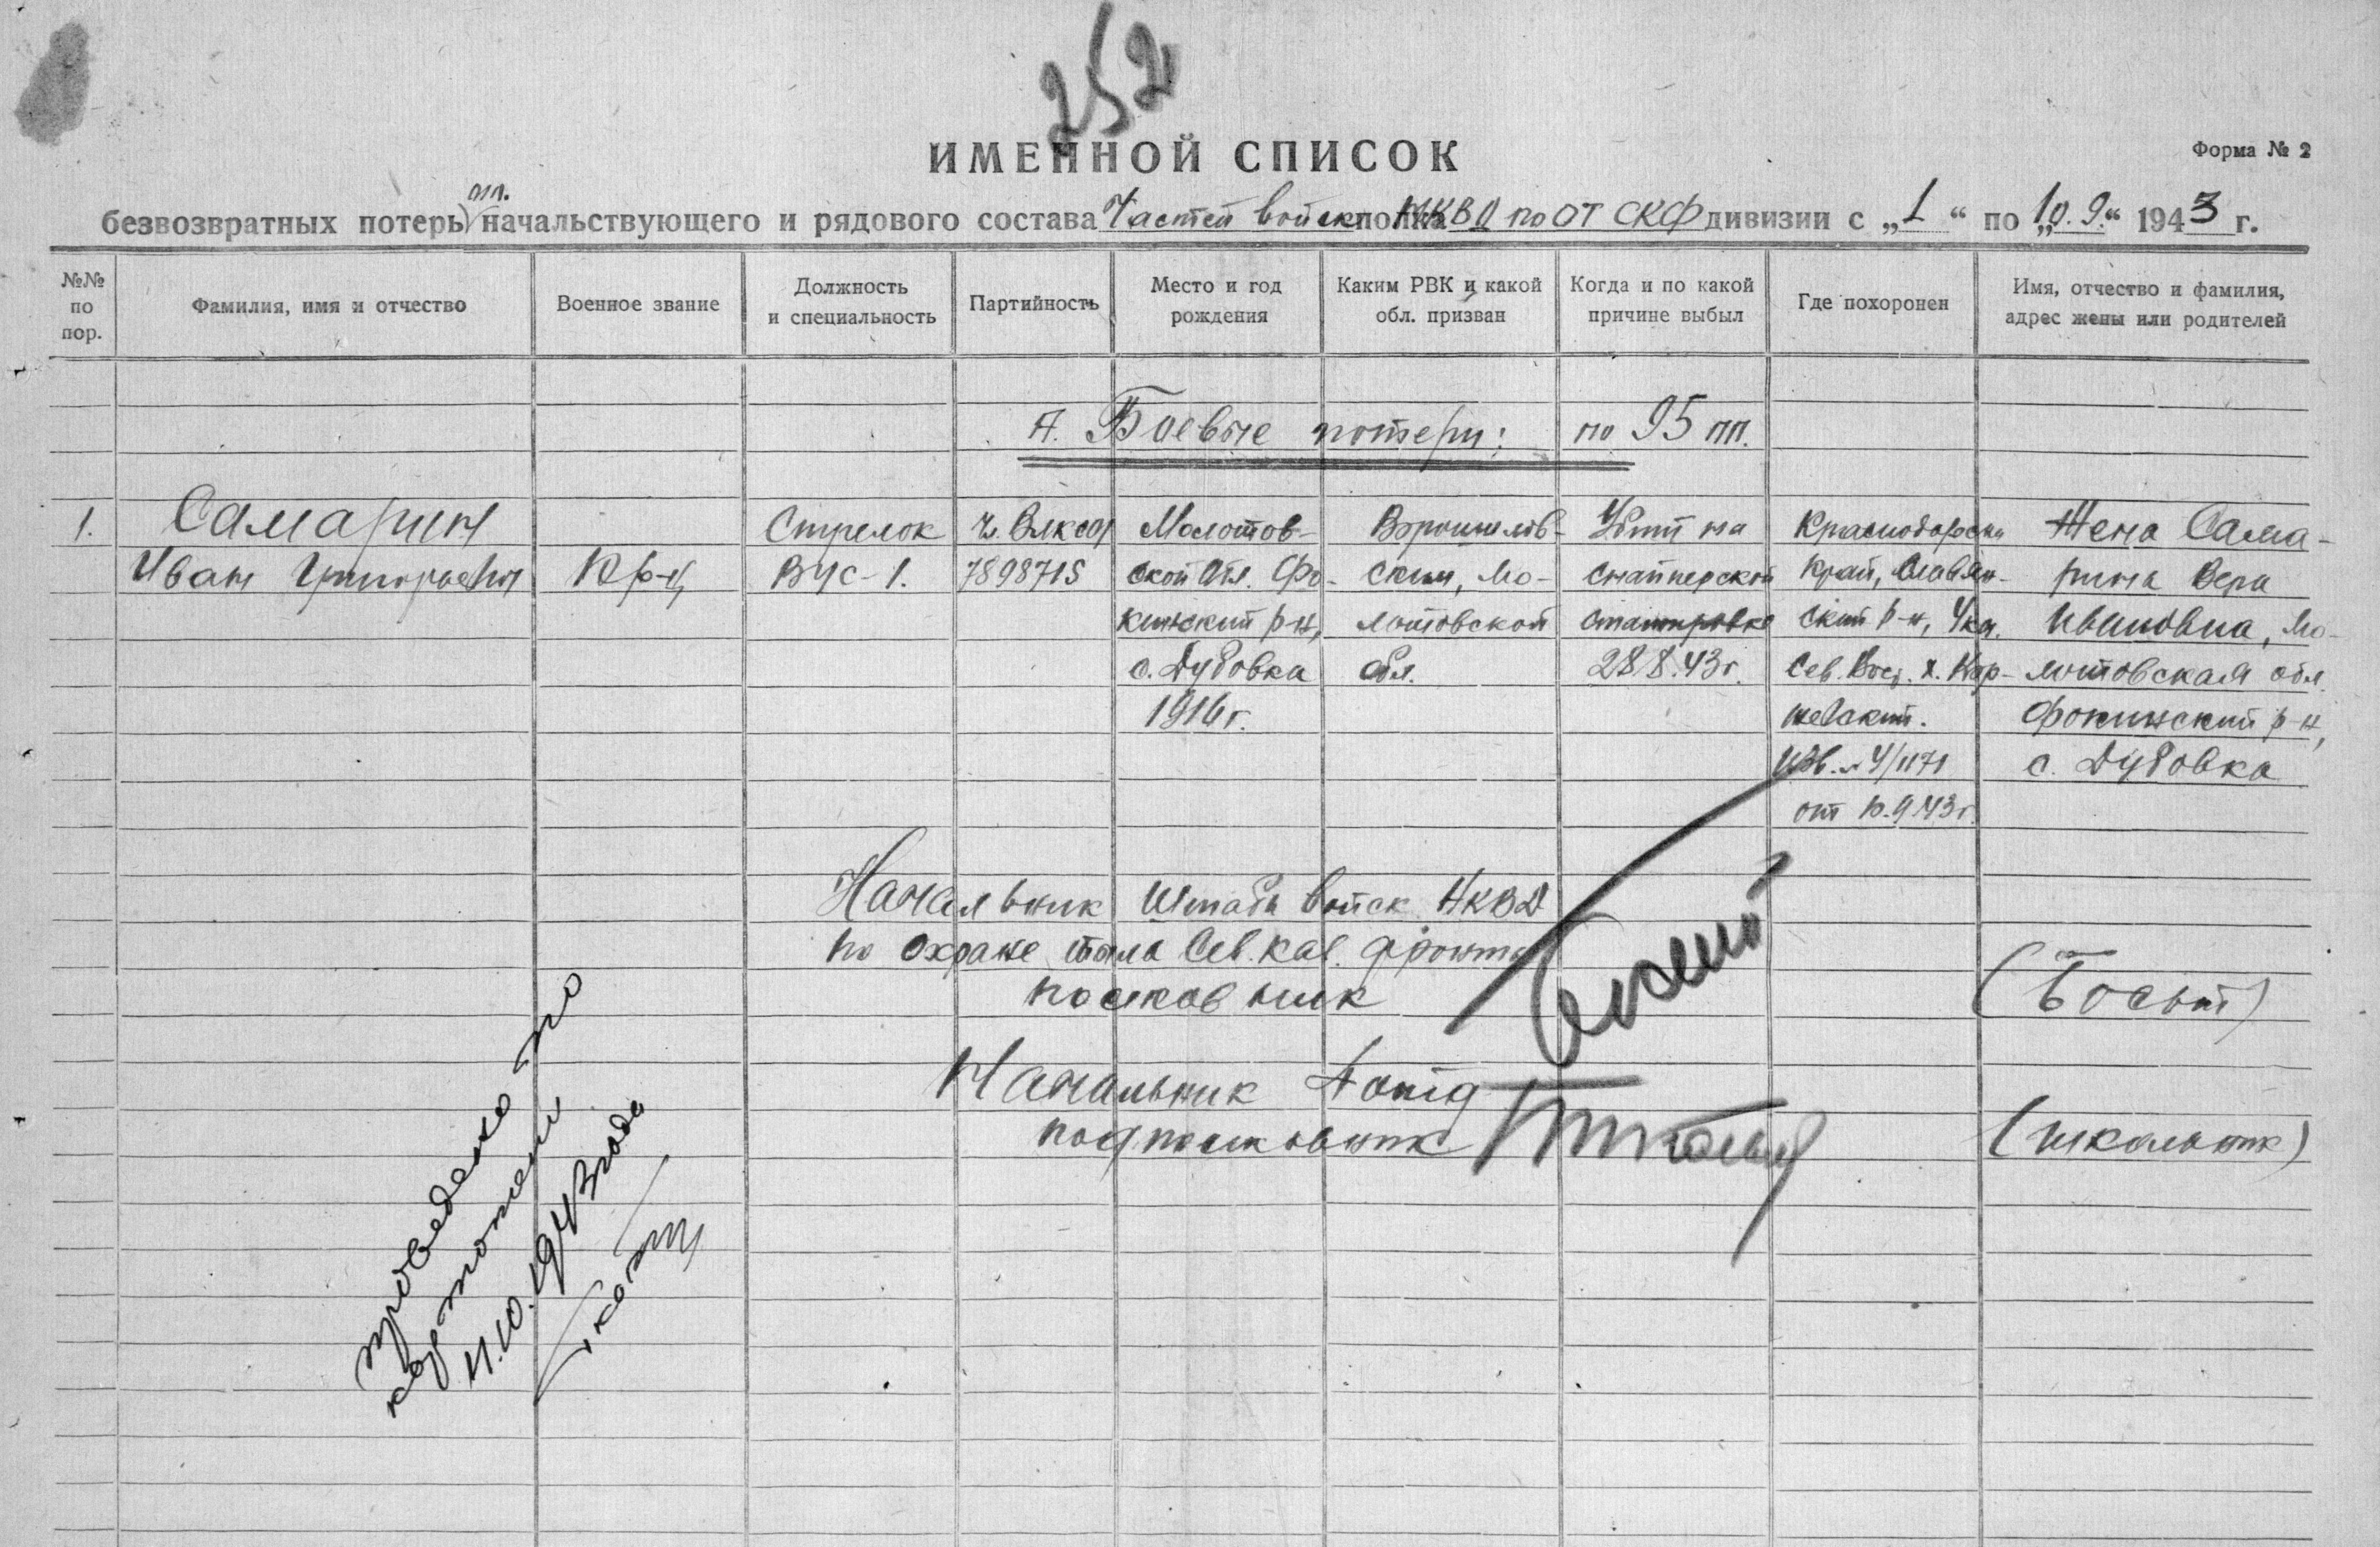 252
ИМЕННОЙ СПИСОК
Форма № 2
безвозвратных потерь нач. начальствующего и рядового состава Частей войск НКВД по ОТ СКФ дивизии с „1“ по „10.9.“ 1943 г.
№№ по пор.
Фамилия, имя и отчество
Военное звание
Должность и специальность
Партийность
Место и год рождения
Каким РВК и какой обл. призван
Когда и по какой причине выбыл
Где похоронен
Имя, отчество и фамилия, адрес жены или родителей
А. Боевые потери: по 95 пп.
1.
Самарин
Иван Григорьевич
Кр-ц
Стрелок
ВУС-1.
Чл. ВЛКСМ
7898715
Молотов-
ской обл. Фо-
кинский р-н,
с. Дубовка
1916 г.
Ворошилов-
ским, Мо-
лотовской
обл.
Убит на
снайперской
28.8.43 г.
Краснодарский
край, Славян-
ский р-н, 4 км.
Сев. Вост. х. Кор-
жевский.
Изв. № 4/1171
от 10.9.43 г.
Жена Сама-
рина Вера
Ивановна, Мо-
лотовская обл.
Фокинский р-н,
с. Дубовка
Начальник Штаба войск НКВД
по охране тыла Сев. Кав. фронта
полковник
(Босый)
Начальник
подполковник
(Школьник)
проведено по
картотеке
11.10.1943 года